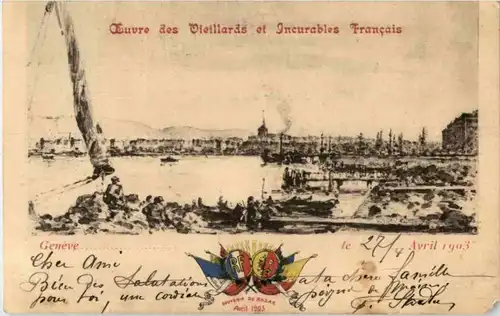 Œuvre des Vieillards et Incurables Français
Genève.................... le 27/4 Avril 1903
Cher Ami
Bien des Salutations à ta chère famille
pour toi, un cordial poigne de main
SOUVENIR DU BAZAR
Avril 1903